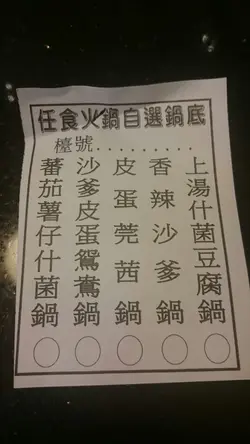 任食火鍋自選鍋底
檯號.........
上湯什菌豆腐鍋
香辣沙爹鍋
皮蛋莞茜鍋
沙爹皮蛋鴛鴦鍋
蕃茄薯仔什菌鍋